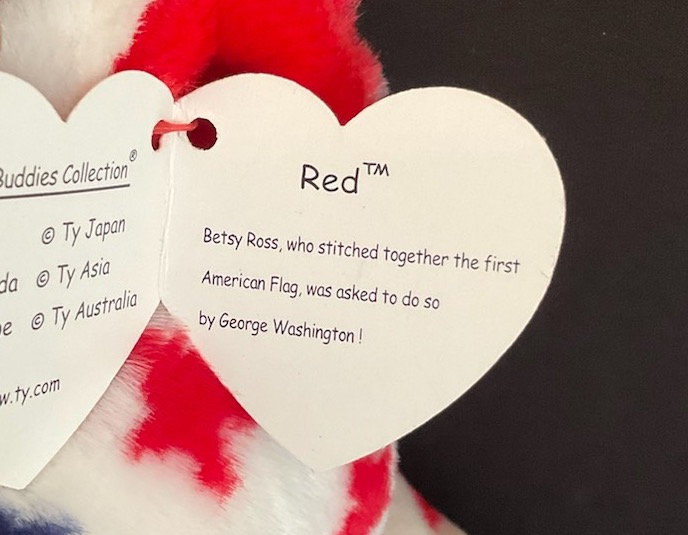 Buddies Collection®
© Ty Japan
© Ty Asia
© Ty Australia
w.ty.com
Red™
Betsy Ross, who stitched together the first
American Flag, was asked to do so
by George Washington !